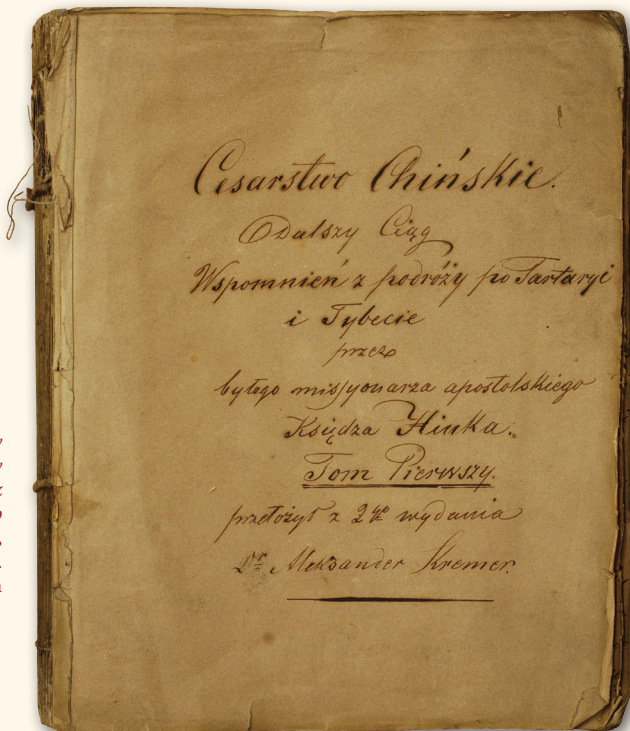 Cesarstwo Chińskie.
Dalszy Ciąg
Wspomnień z podróży po Tartaryi
i Tybecie
przez
byłego missyonarza apostolskiego
Księdza Hiuka.
Tom Pierwszy.
przełożył z 2go wydania
Dr Aleksander Kremer.